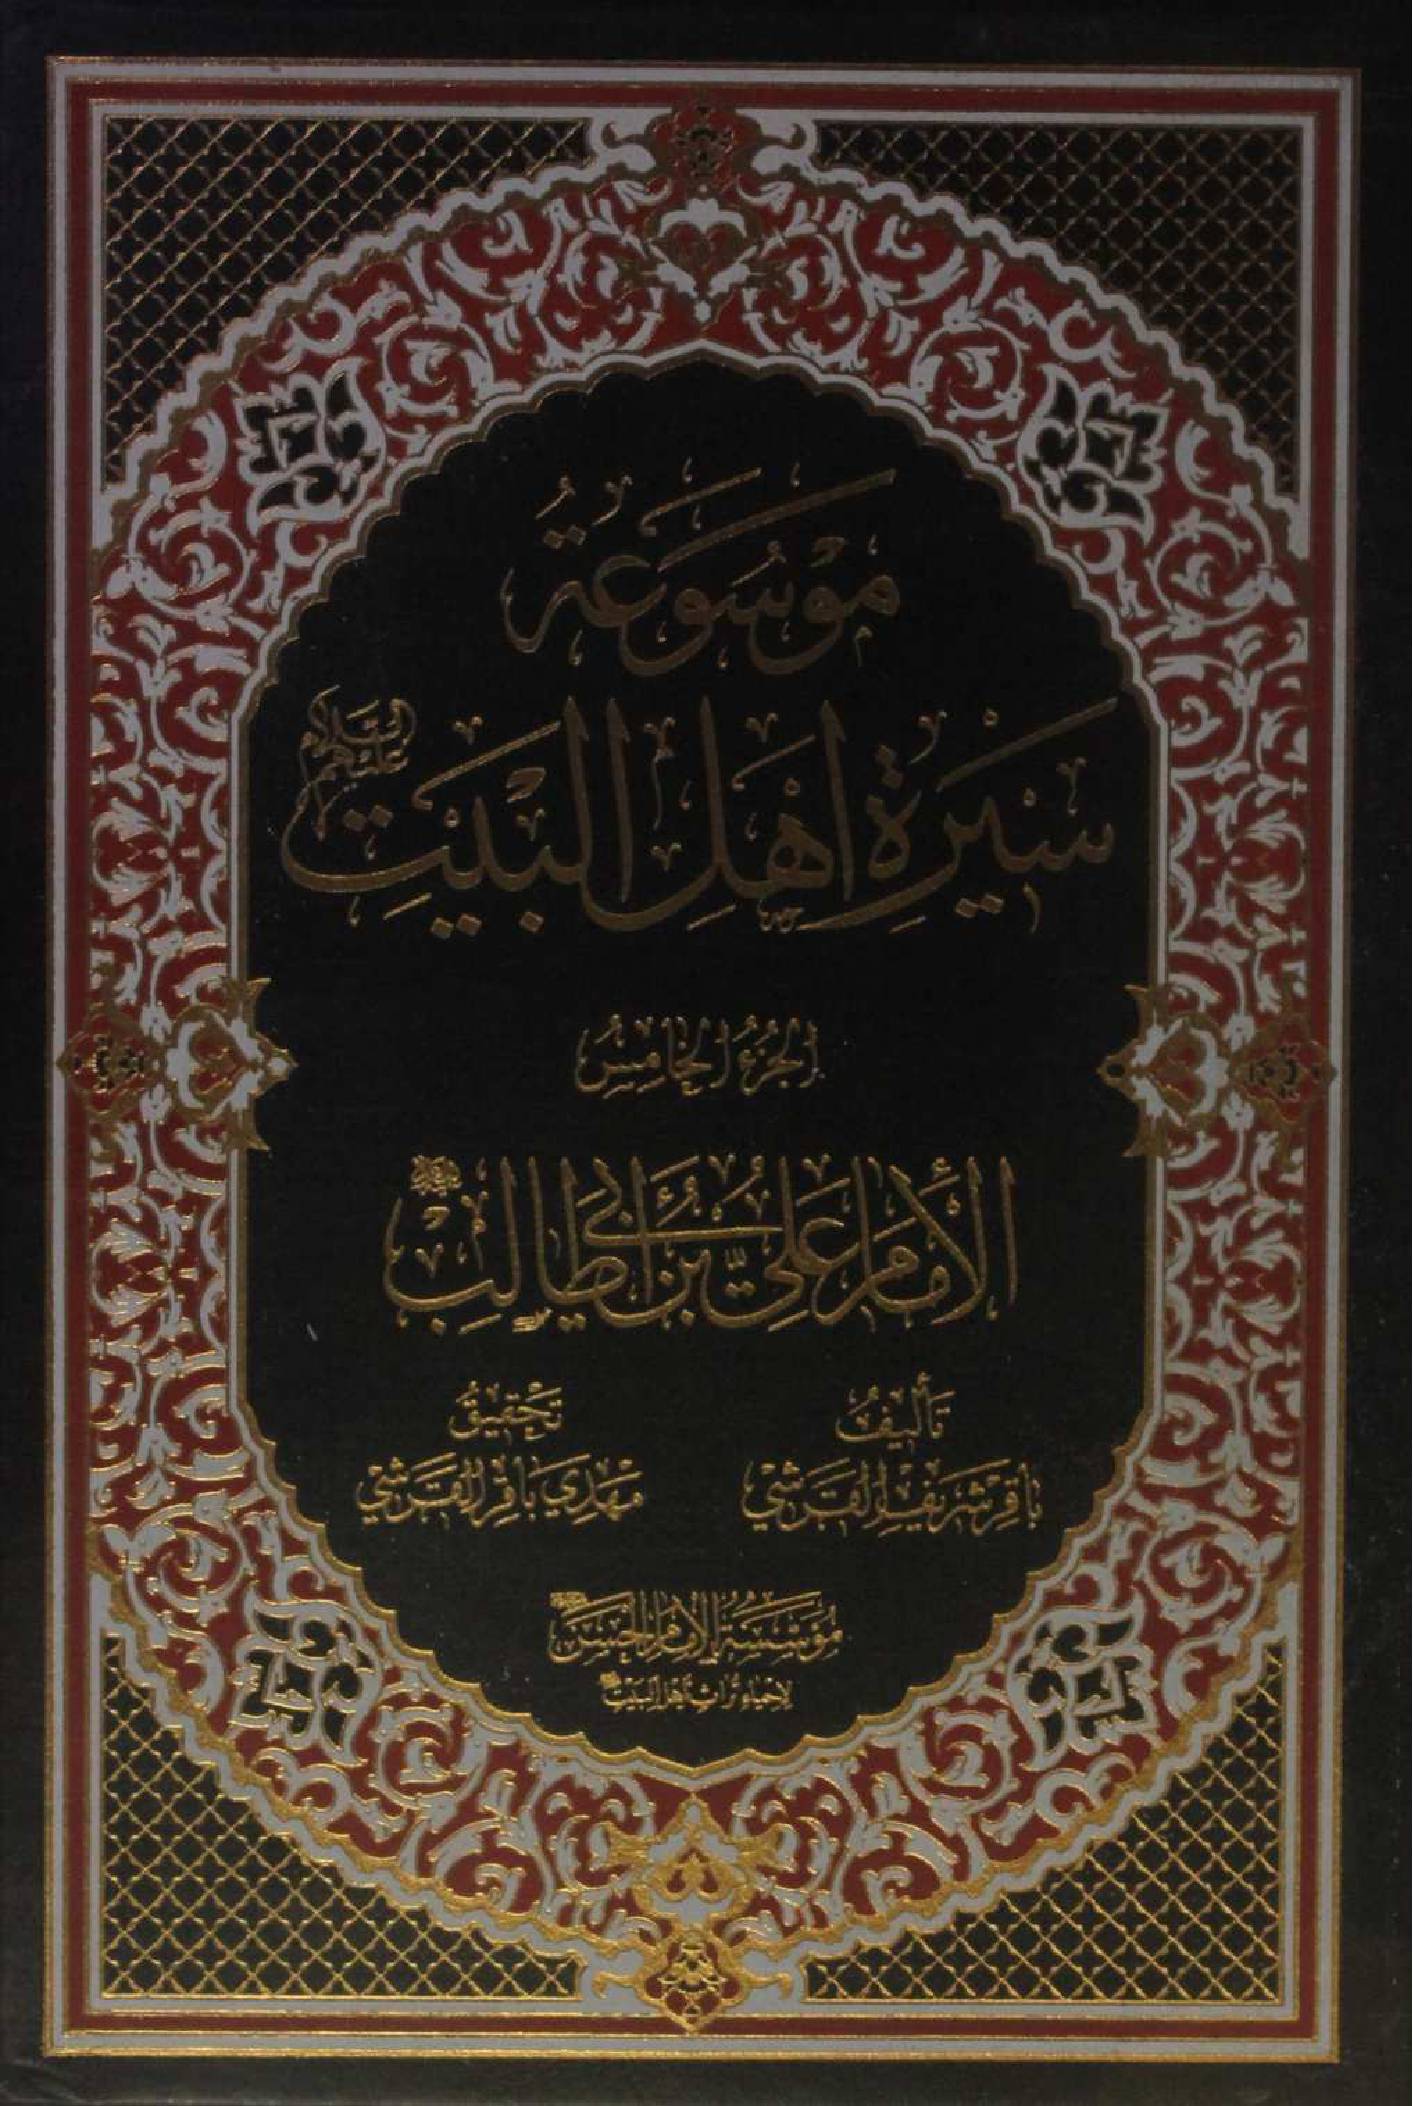 مَوْسُوعَةُ
سِيرَةِ أَهْلِ الْبَيْتِ عَلَيْهِمُ السَّلَام
الجُزْءُ الخَامِسُ
الإِمَامُ عَلِيُّ بْنُ أَبِي طَالِبٍ
تَأْلِيفُ
بَاقِرْ شَرِيفْ القَرَشِي
تَحْقِيقُ
مَهْدِي بَاقِر القَرَشِي
مُؤَسَّسَةُ الإِمَامِ الحَسَنِ
لإحياء تراث أهل البيت